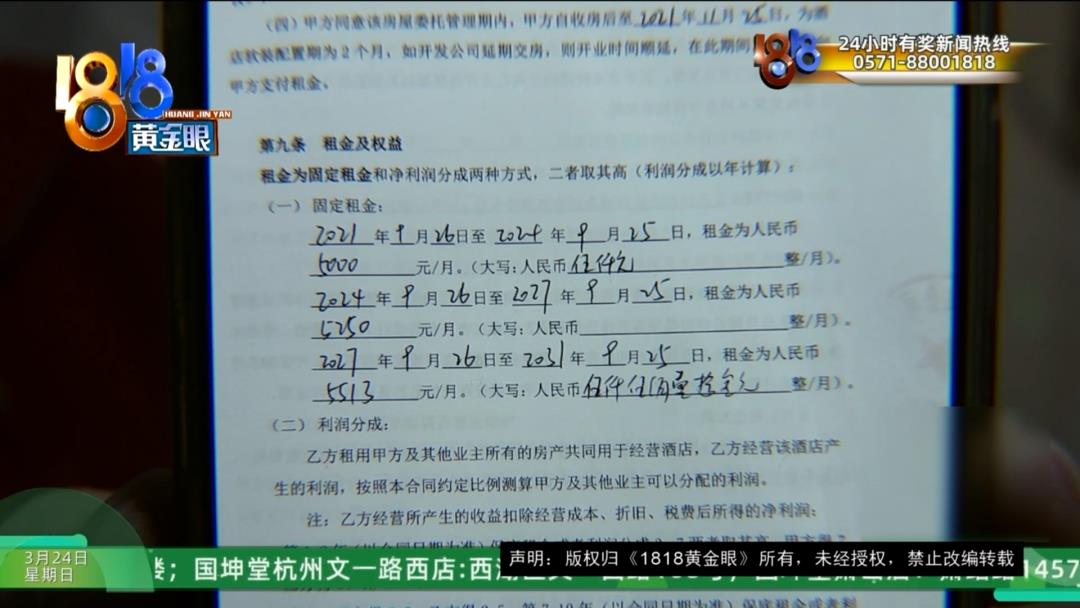 (四)甲方同意该房屋委托管理期内,甲方自收房后至2021年11月25日,为酒
店软装配置期为2个月,如开发公司延期交房,则开业时间顺延,在此期间
甲方支付租金。
1818
HUANG JIN YAN
黄金眼
1818
24小时有奖新闻热线
0571-88001818
第九条 租金及权益
租金为固定租金和净利润分成两种方式,二者取其高(利润分成以年计算):
(一) 固定租金:
2021年9月26日至2024年9月25日,租金为人民币
5000元/月。(大写:人民币伍仟元整/月)。
2024年9月26日至2027年9月25日,租金为人民币
5250元/月。(大写:人民币整/月)。
2027年9月26日至2031年9月25日,租金为人民币
5513元/月。(大写:人民币伍仟伍佰壹拾叁元整/月)。
(二) 利润分成:
乙方租用甲方及其他业主所有的房产共同用于经营酒店,乙方经营该酒店产
生的利润,按照本合同约定比例测算甲方及其他业主可以分配的利润。
注:乙方经营所产生的收益扣除经营成本、折旧、税费后所得的净利润:
3月24日
星期日
;国坤堂杭州文一路西店:西湖区文一西路
1457
声明:版权归《1818黄金眼》所有,未经授权,禁止改编转载